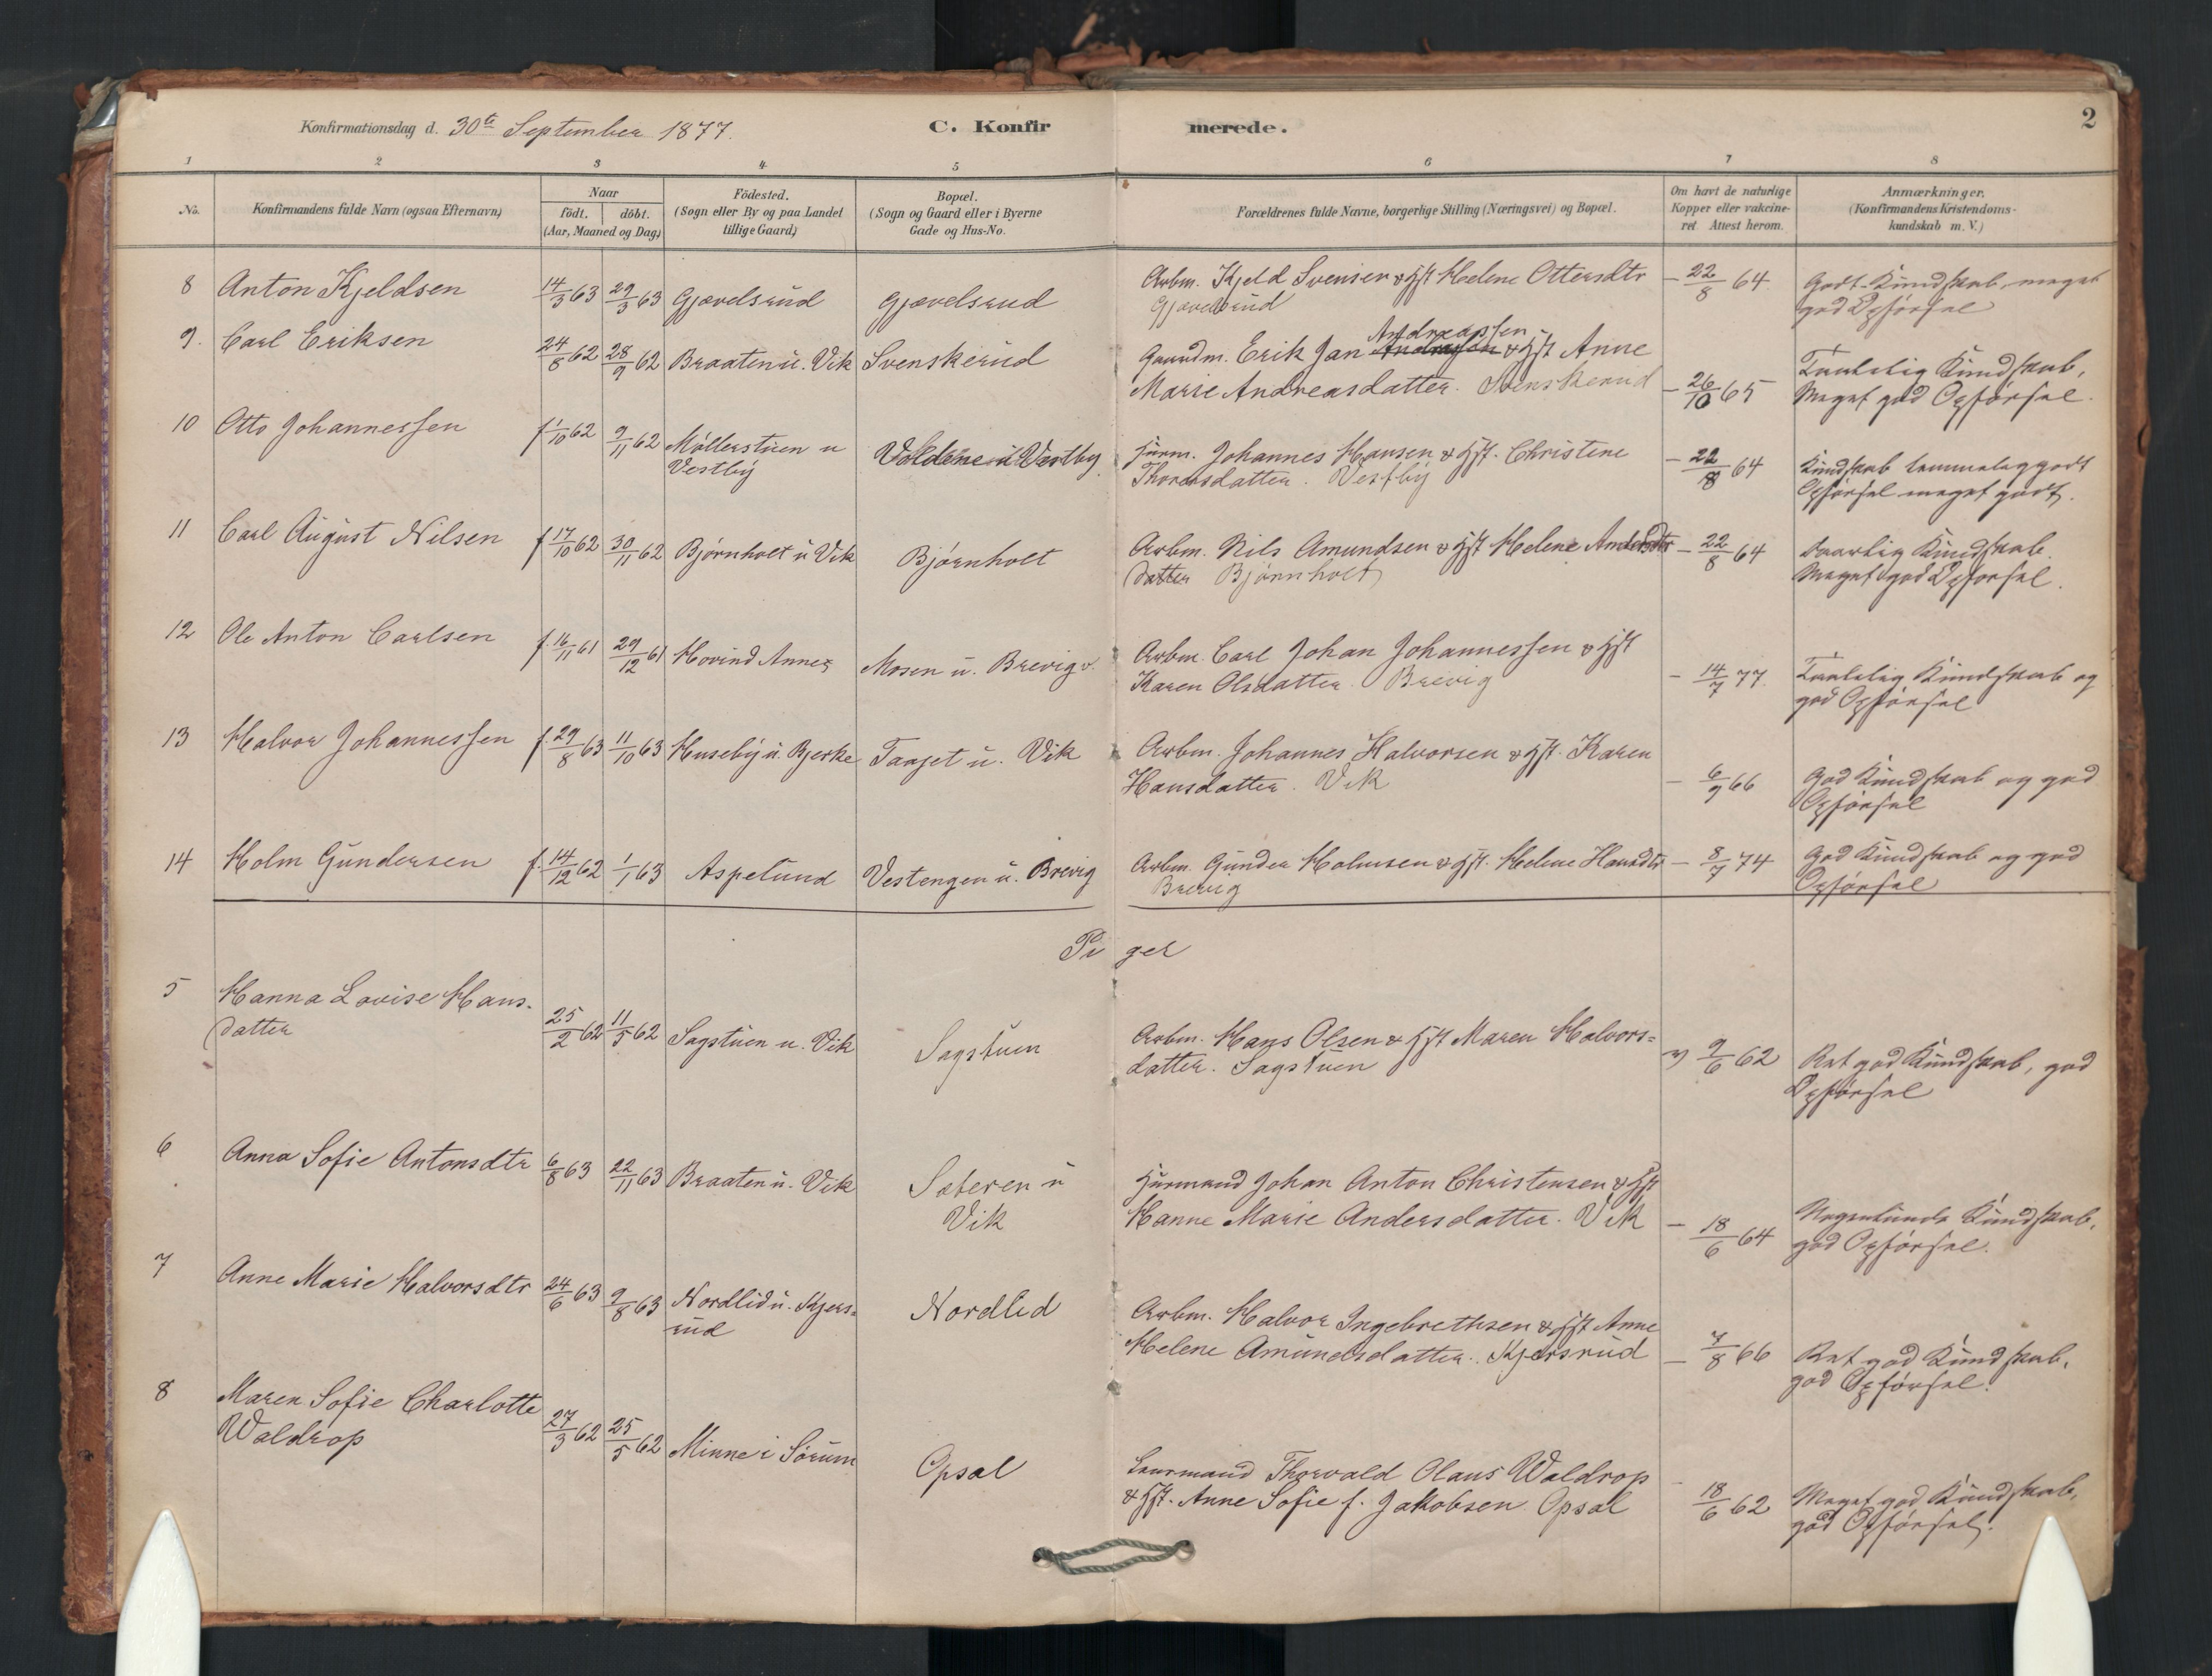 Konfirmationsdag d. 30te September 1877. C. Konfirmerede. 2
1 2 3 4 5 6 7 8
No.
Konfirmandens fulde Navn (ogsaa Efternavn)
Naar
födt. döbt.
(Aar, Maaned og Dag)
Födested.
(Sogn eller By og paa Landet
tillige Gaard)
Bopæl.
(Sogn og Gaard eller i Byerne
Gade og Hus-No.
Forældrenes fulde Navne, borgerlige Stilling (Næringsvei) og Bopæl.
Om havt de naturlige
Kopper eller vakcine-
ret Attest herom.
Anmærkninger.
(Konfirmandens Kristendoms-
kundskab m. V.)
8 Anton Kjeldsen 14/3 63 29/3 63 Gjævelsrud Gjævelsrud Arbm. Kjeld Svensen & Hst Helene Ottersdtr – 22/8 64 Godt Kundskab, meget
Gjævelsrud god Opførsel
9. Carl Eriksen 24/8 62 28/9 62 Braaten u. Vik Svenskerud Gaardm. Erik Jan Andreassen & Hst Anne
Marie Andreasdatter. Svenskerud – 26/10 65 Taalelig Kundskab,
Meget god Opførsel.
10 Otto Johannessen f 1/10 62 9/11 62 Möllerstuen u
Vestby Voldene u Vestby Husm. Johannes Hansen & Hst. Christine
Thoresdatter. Vestby – 22/8 64 Kundskab temmelig godt
Opførsel meget godt.
11 Carl August Nilsen f 17/10 62 30/11 62 Björnholt u Vik Björnholt Arbm. Nils Amundsen & Hst Helene Andersdtr – 22/8 64 daarlig Kundskab.
datter Björnholt Meget god Opførsel.
12 Ole Anton Carlsen f. 16/11 61 29/12 61 Hovind Annex Mosen u. Brevig Arbm. Carl Johan Johannessen & Hst
Karen Olsdatter. Brevig – 14/7 77. Taalelig Kundskab og
god Opførsel
13 Halvor Johannessen f. 29/8 63 11/10 63 Huseby u. Bjerke Taaget u. Vik Arbm. Johannes Halvorsen & Hst. Karen
Hansdatter. Vik – 6/9 66 God Kundskab og god
Opførsel
14 Holm Gundersen f. 14/12 62 1/1 63 Aspelund Vestengen u. Brevig Arbm. Gunder Holmsen & Hst. Helene Hansdtr – 8/7 74 God Kundskab og god
Brevig Opførsel
Piger
5 Hanna Lovise Hans-
datter 25/2 62 11/5 62 Sagstuen u. Vik Sagstuen Arbm. Hans Olsen & Hst Maren Halvors=
datter. Sagstuen 9/6 62 Ret god Kundskab, god
Opførsel
6 Anna Sofie Antonsdtr 6/8 63 22/11 63 Braaten u. Vik Sæteren u
Vik Husmand Johan Anton Christensen & Hst
Hanne Marie Andersdatter. Vik – 18/6 64 Nogenlunde Kundskab,
god Opførsel.
7 Anne Marie Halvorsdtr 24/6 63 9/8 63 Nordlid u. Kjers=
rud Nordlid Arbm. Halvor Ingebrethsen & Hst Anne
Helene Amundsdatter. Kjersrud – 7/8 66 Ret god Kundskab,
god Opførsel.
8 Maren Sofie Charlotte
Waldrop 27/3 62 25/5 62 Minne i Sörum Opsal Thorvald Olaus Waldrop
& Hst. Anne Sofie f. Jakobsen Opsal – 18/6 62 Meget god Kundskab,
god Opførsel.